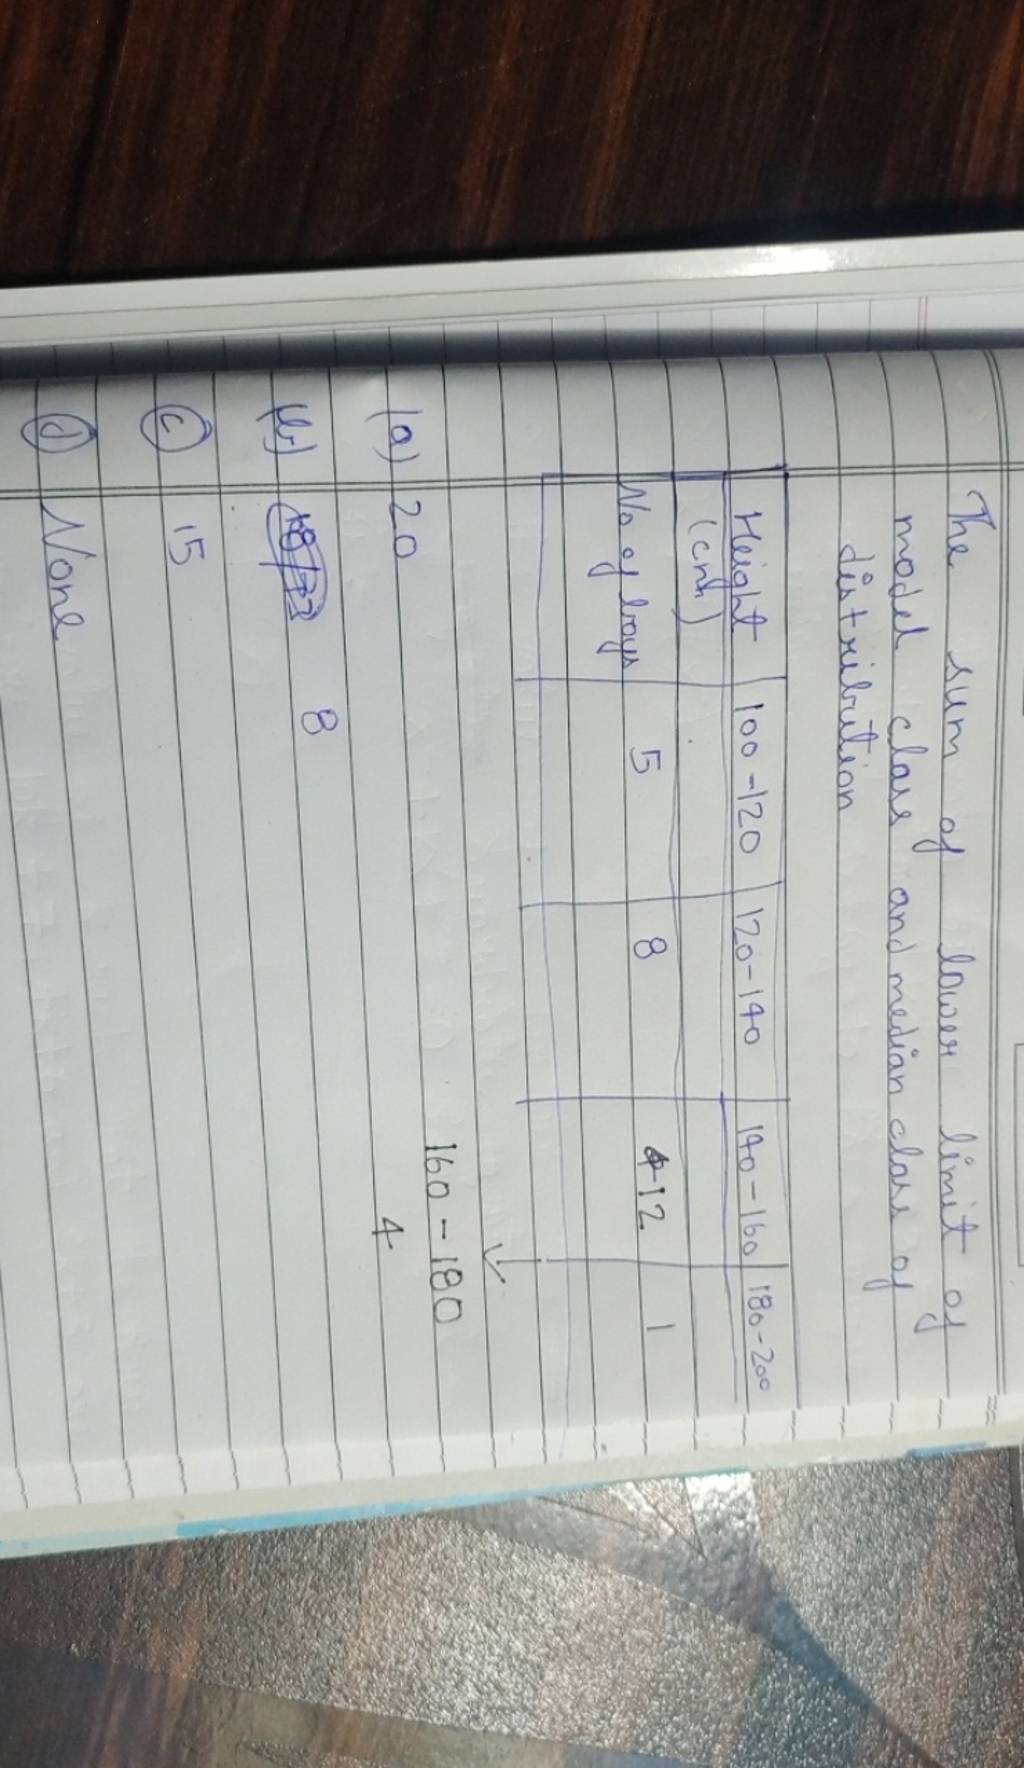 The sum of lower limit of
model class and median class of
distribution
Height (cm) 100-120 120-140 140-160 180-200
No of boys 5 8 12 1
160-180
4
(a) 20
(b) 8
(c) 15
(d) None